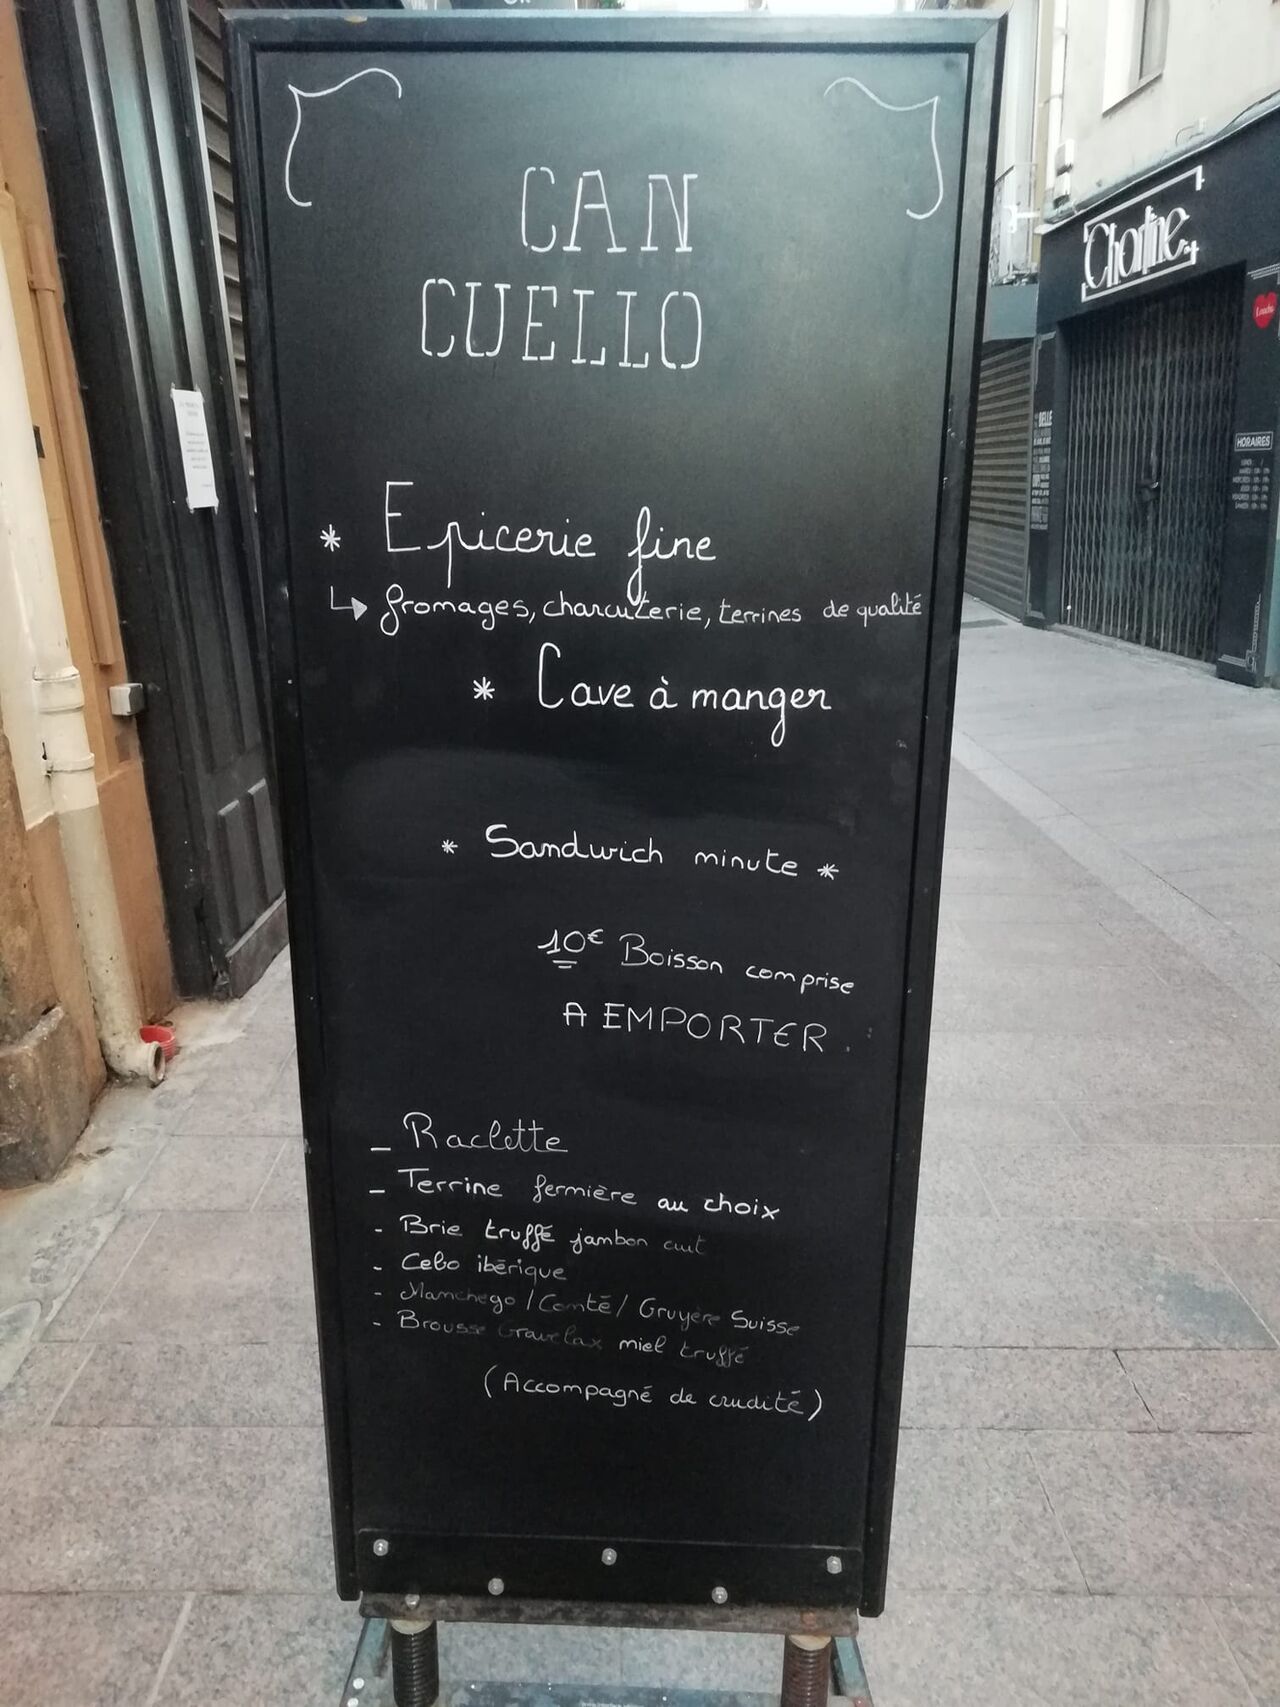 CAN
CUELLO
* Epicerie fine
fromages, charcuterie, terrines de qualité
* Cave à manger
* Sandwich minute *
10€ Boisson comprise
A EMPORTER.
- Raclette
- Terrine fermière au choix
- Brie truffé jambon cuit
- Cebo ibérique
- Manchego / Comté / Gruyère Suisse
- Brousse Gravelax miel truffé
(Accompagné de crudité)
Charline
BELLE
HORAIRES